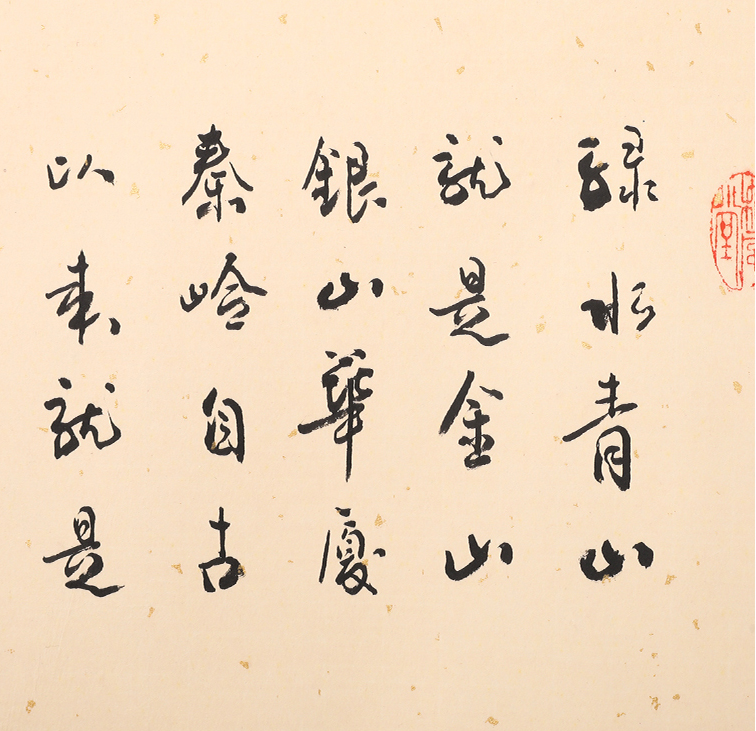 綠水青山
就是金山
銀山華夏
秦岭自古
以来就是